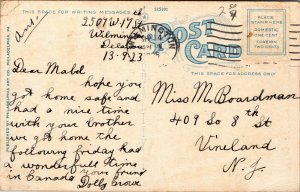 THIS SPACE FOR WRITING MESSAGES
115101
POST CARD
PLACE STAMP HERE
DOMESTIC ONE CENT
FOREIGN TWO CENTS
THIS SPACE FOR ADDRESS ONLY
Ans.
2507 W 17 St
Wilmington
Delaware
13-9-23
Dear Mabel
hope you
got home safe and
had a nice time
with your brother
we got home the
following friday had
a wonderfull time
in Canada your friend
Dolly
Miss M. Boardman
409 So 8th St
Vineland
N. J.